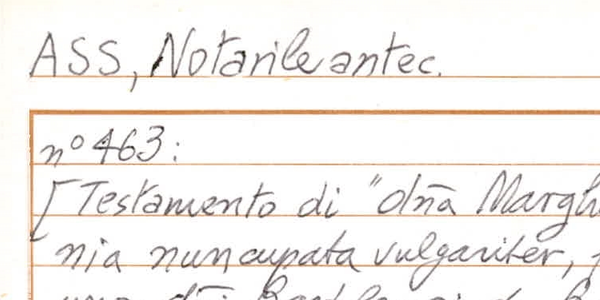 ASS, Notarile antec.
n° 463:
[Testamento di "dña Margh
nia nuncupata vulgariter,